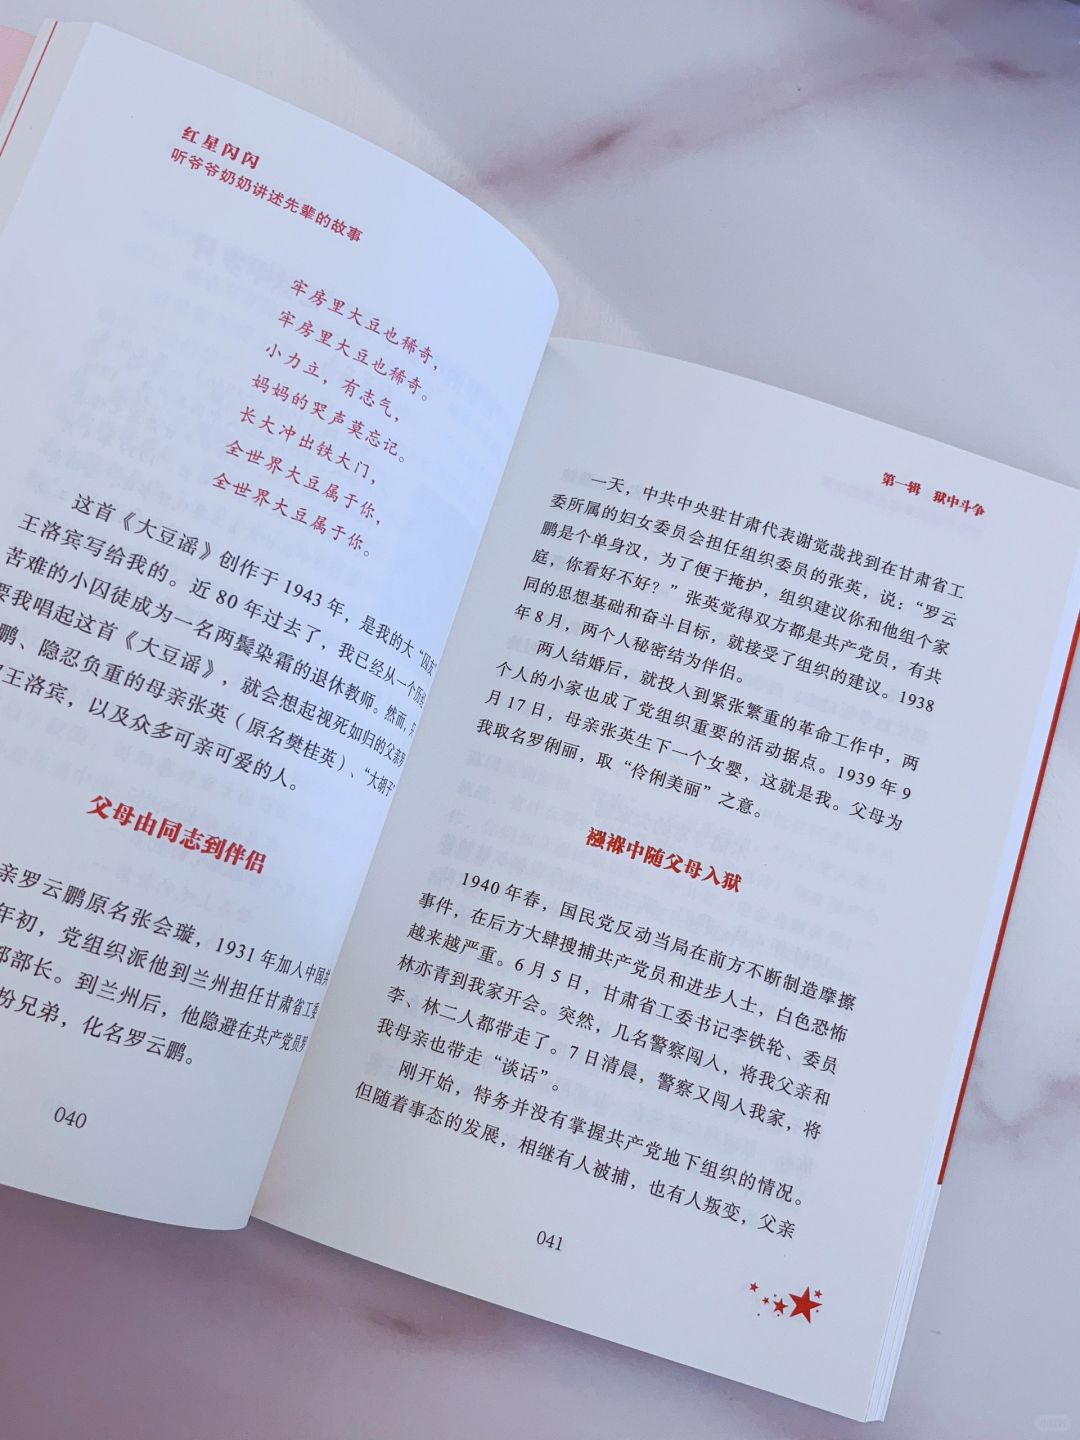 红星闪闪
听爷爷奶奶讲述先辈的故事
牢房里大豆也稀奇，
牢房里大豆也稀奇。
小力立，有志气，
妈妈的哭声莫忘记。
长大冲出铁大门，
全世界大豆属于你，
全世界大豆属于你。
这首《大豆谣》创作于1943年，是我的大“囚友”
王洛宾写给我的。近80年过去了，我已经从一个历经
苦难的小囚徒成为一名两鬓染霜的退休教师。然而，
要我唱起这首《大豆谣》，就会想起视死如归的父亲
鹏、隐忍负重的母亲张英（原名樊桂英）、“大胡子”
王洛宾，以及众多可亲可爱的人。
父母由同志到伴侣
亲罗云鹏原名张会璇，1931年加入中国
年初，党组织派他到兰州担任甘肃省工委
部部长。到兰州后，他隐避在共产党员罗
扮兄弟，化名罗云鹏。
040
第一辑 狱中斗争
一天，中共中央驻甘肃代表谢觉哉找到在甘肃省工
委所属的妇女委员会担任组织委员的张英，说：“罗云
鹏是个单身汉，为了便于掩护，组织建议你和他组个家
庭，你看好不好？”张英觉得双方都是共产党员，有共
同的思想基础和奋斗目标，就接受了组织的建议。1938
年8月，两个人秘密结为伴侣。
两人结婚后，就投入到紧张繁重的革命工作中，两
个人的小家也成了党组织重要的活动据点。1939年9
月17日，母亲张英生下一个女婴，这就是我。父母为
我取名罗俐丽，取“伶俐美丽”之意。
襁褓中随父母入狱
1940年春，国民党反动当局在前方不断制造摩擦
事件，在后方大肆搜捕共产党员和进步人士，白色恐怖
越来越严重。6月5日，甘肃省工委书记李铁轮、委员
林亦青到我家开会。突然，几名警察闯入，将我父亲和
李、林二人都带走了。7日清晨，警察又闯入我家，将
我母亲也带走“谈话”。
刚开始，特务并没有掌握共产党地下组织的情况。
但随着事态的发展，相继有人被捕，也有人叛变，父亲
041